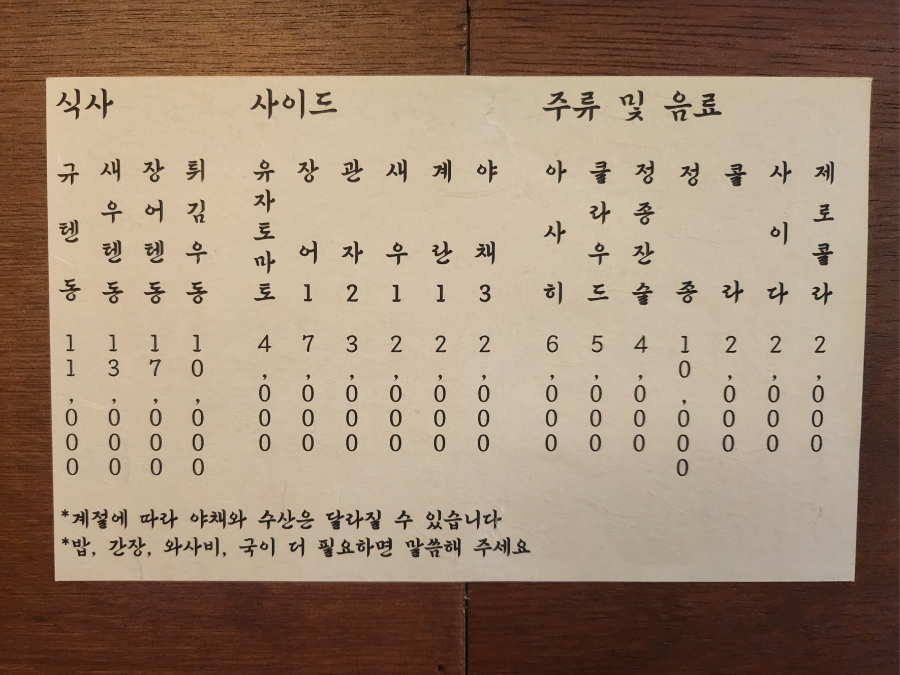 식사
규텐동 11,000
새우텐동 13,000
장어텐동 17,000
튀김우동 10,000
사이드
유자토마토 4,000
장어1 7,000
관자2 3,000
새우1 2,000
계란1 2,000
야채3 2,000
주류 및 음료
아사히 6,000
클라우드 5,000
정종잔술 4,000
정종 10,000
콜라 2,000
사이다 2,000
제로콜라 2,000
*계절에 따라 야채와 수산은 달라질 수 있습니다
*밥, 간장, 와사비, 국이 더 필요하면 말씀해 주세요